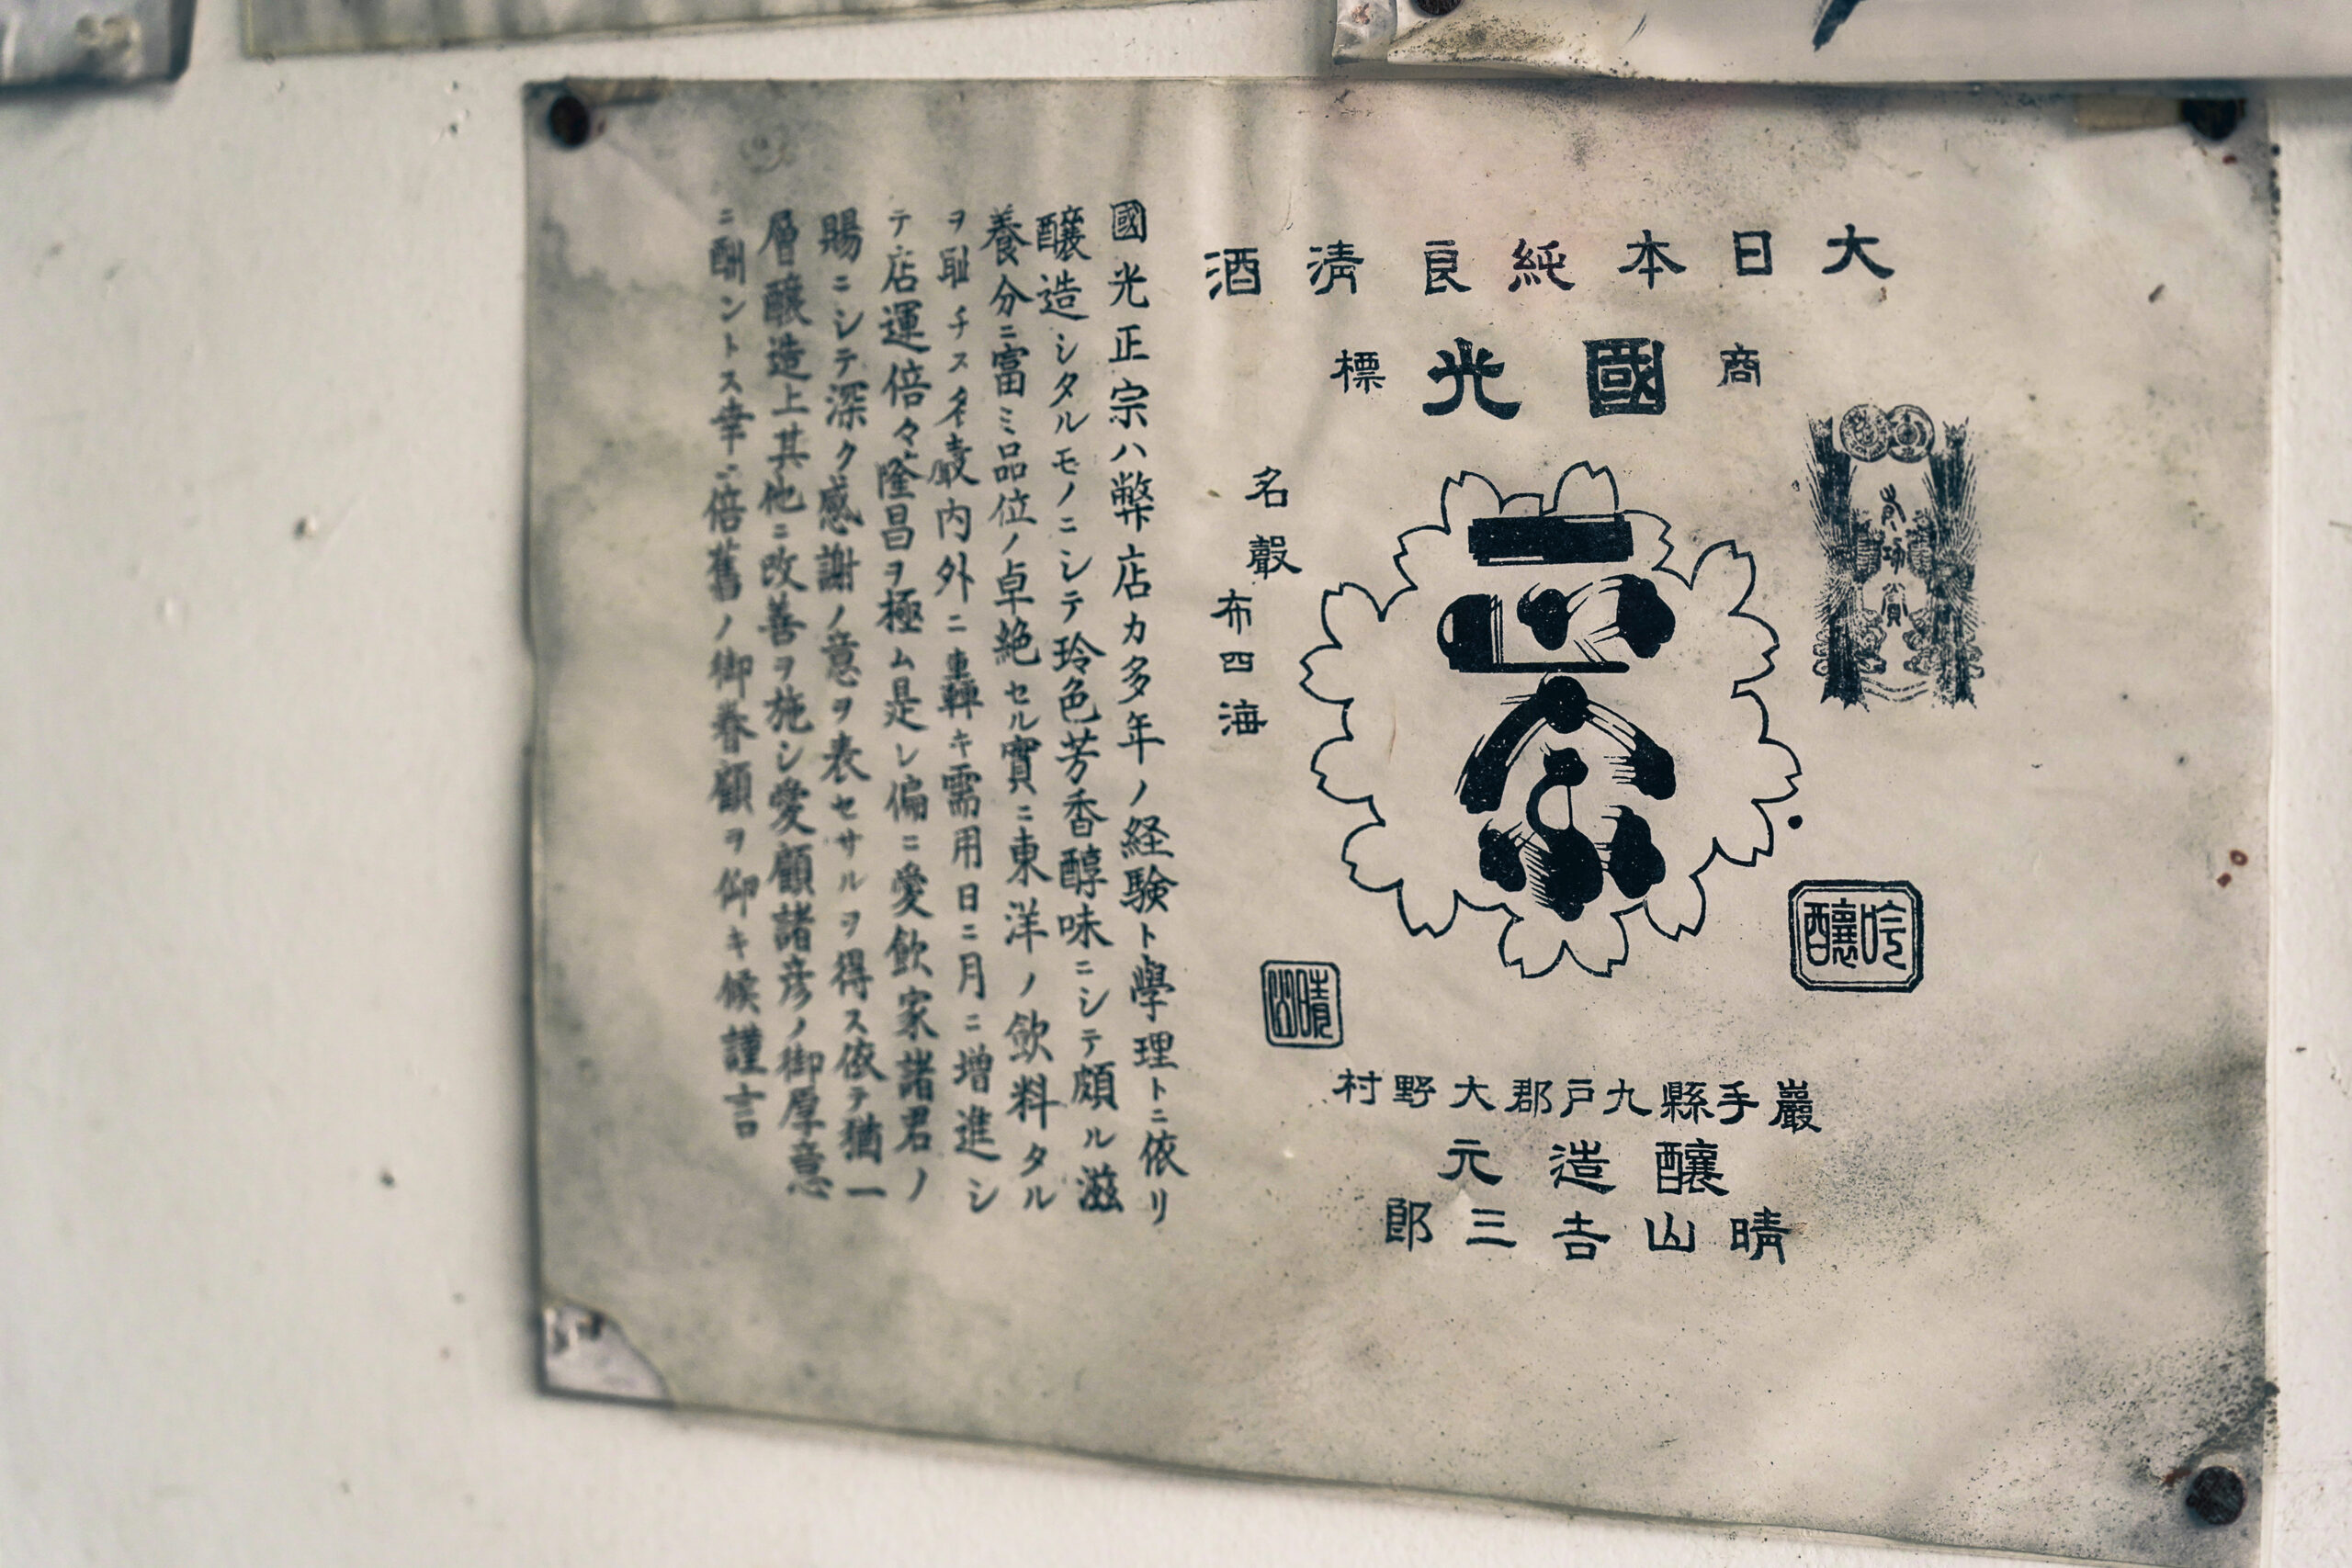 大日本純良淸酒
商國光標
有功賞
正宗
名聲布四海
吟醸
晴山
巖手縣九戸郡大野村
醸造元
晴山吉三郎
國光正宗ハ弊店カ多年ノ経験ト學理トニ依リ
醸造シタルモノニシテ玲色芳香醇味ニシテ頗ル滋
養分ニ富ミ品位ノ卓絶セル實ニ東洋ノ飲料タル
ヲ耻チス名聲内外ニ轟キ需用日ニ月ニ増進シ
テ店運倍々隆昌ヲ極ム是レ偏ニ愛飲家諸君ノ
賜ニシテ深ク感謝ノ意ヲ表セサルヲ得ス依テ猶一
層醸造上其他ニ改善ヲ施シ愛顧諸彦ノ御厚意
ニ酬ントス幸ニ倍舊ノ御眷顧ヲ仰キ候謹言